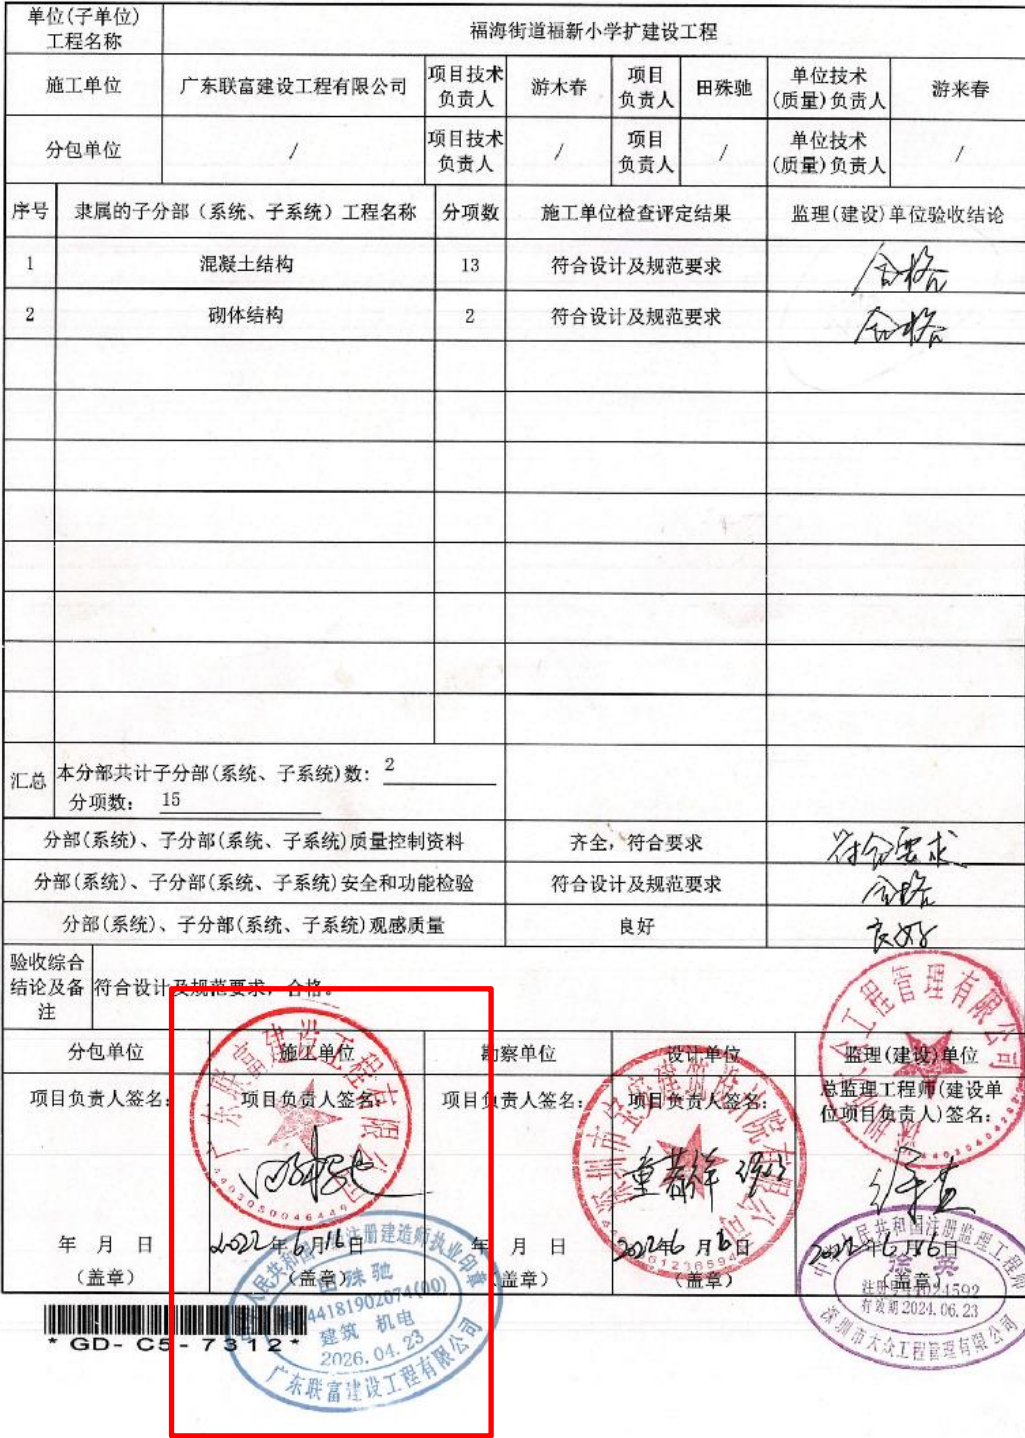 单位(子单位)
工程名称
福海街道福新小学扩建设工程
施工单位
广东联富建设工程有限公司
项目技术
负责人
游木春
项目
负责人
田殊驰
单位技术
(质量)负责人
游来春
分包单位
/
项目技术
负责人
/
项目
负责人
/
单位技术
(质量)负责人
/
序号
隶属的子分部（系统、子系统）工程名称
分项数
施工单位检查评定结果
监理(建设)单位验收结论
1
混凝土结构
13
符合设计及规范要求
合格
2
砌体结构
2
符合设计及规范要求
合格
汇总
本分部共计子分部(系统、子系统)数: 2
分项数: 15
分部(系统)、子分部(系统、子系统)质量控制资料
齐全，符合要求
符合要求
分部(系统)、子分部(系统、子系统)安全和功能检验
符合设计及规范要求
合格
分部(系统)、子分部(系统、子系统)观感质量
良好
良好
验收综合
结论及备
注
符合设计及规范要求，合格。
分包单位
施工单位
勘察单位
设计单位
监理(建设)单位
项目负责人签名:
项目负责人签名:
项目负责人签名:
项目负责人签名:
总监理工程师(建设单
位项目负责人)签名:
广东联富建设工程有限公司
4403050046449
年 月 日
2022年6月16日
年 月 日
2022年6月16日
2022年6月16日
（盖章）
（盖章）
（盖章）
（盖章）
（盖章）
田殊驰
44181902074(00)
建筑 机电
2026.04.23
广东联富建设工程有限公司
有效期2024.06.23
深圳市大众工程管理有限公司
*GD-C5-7312*